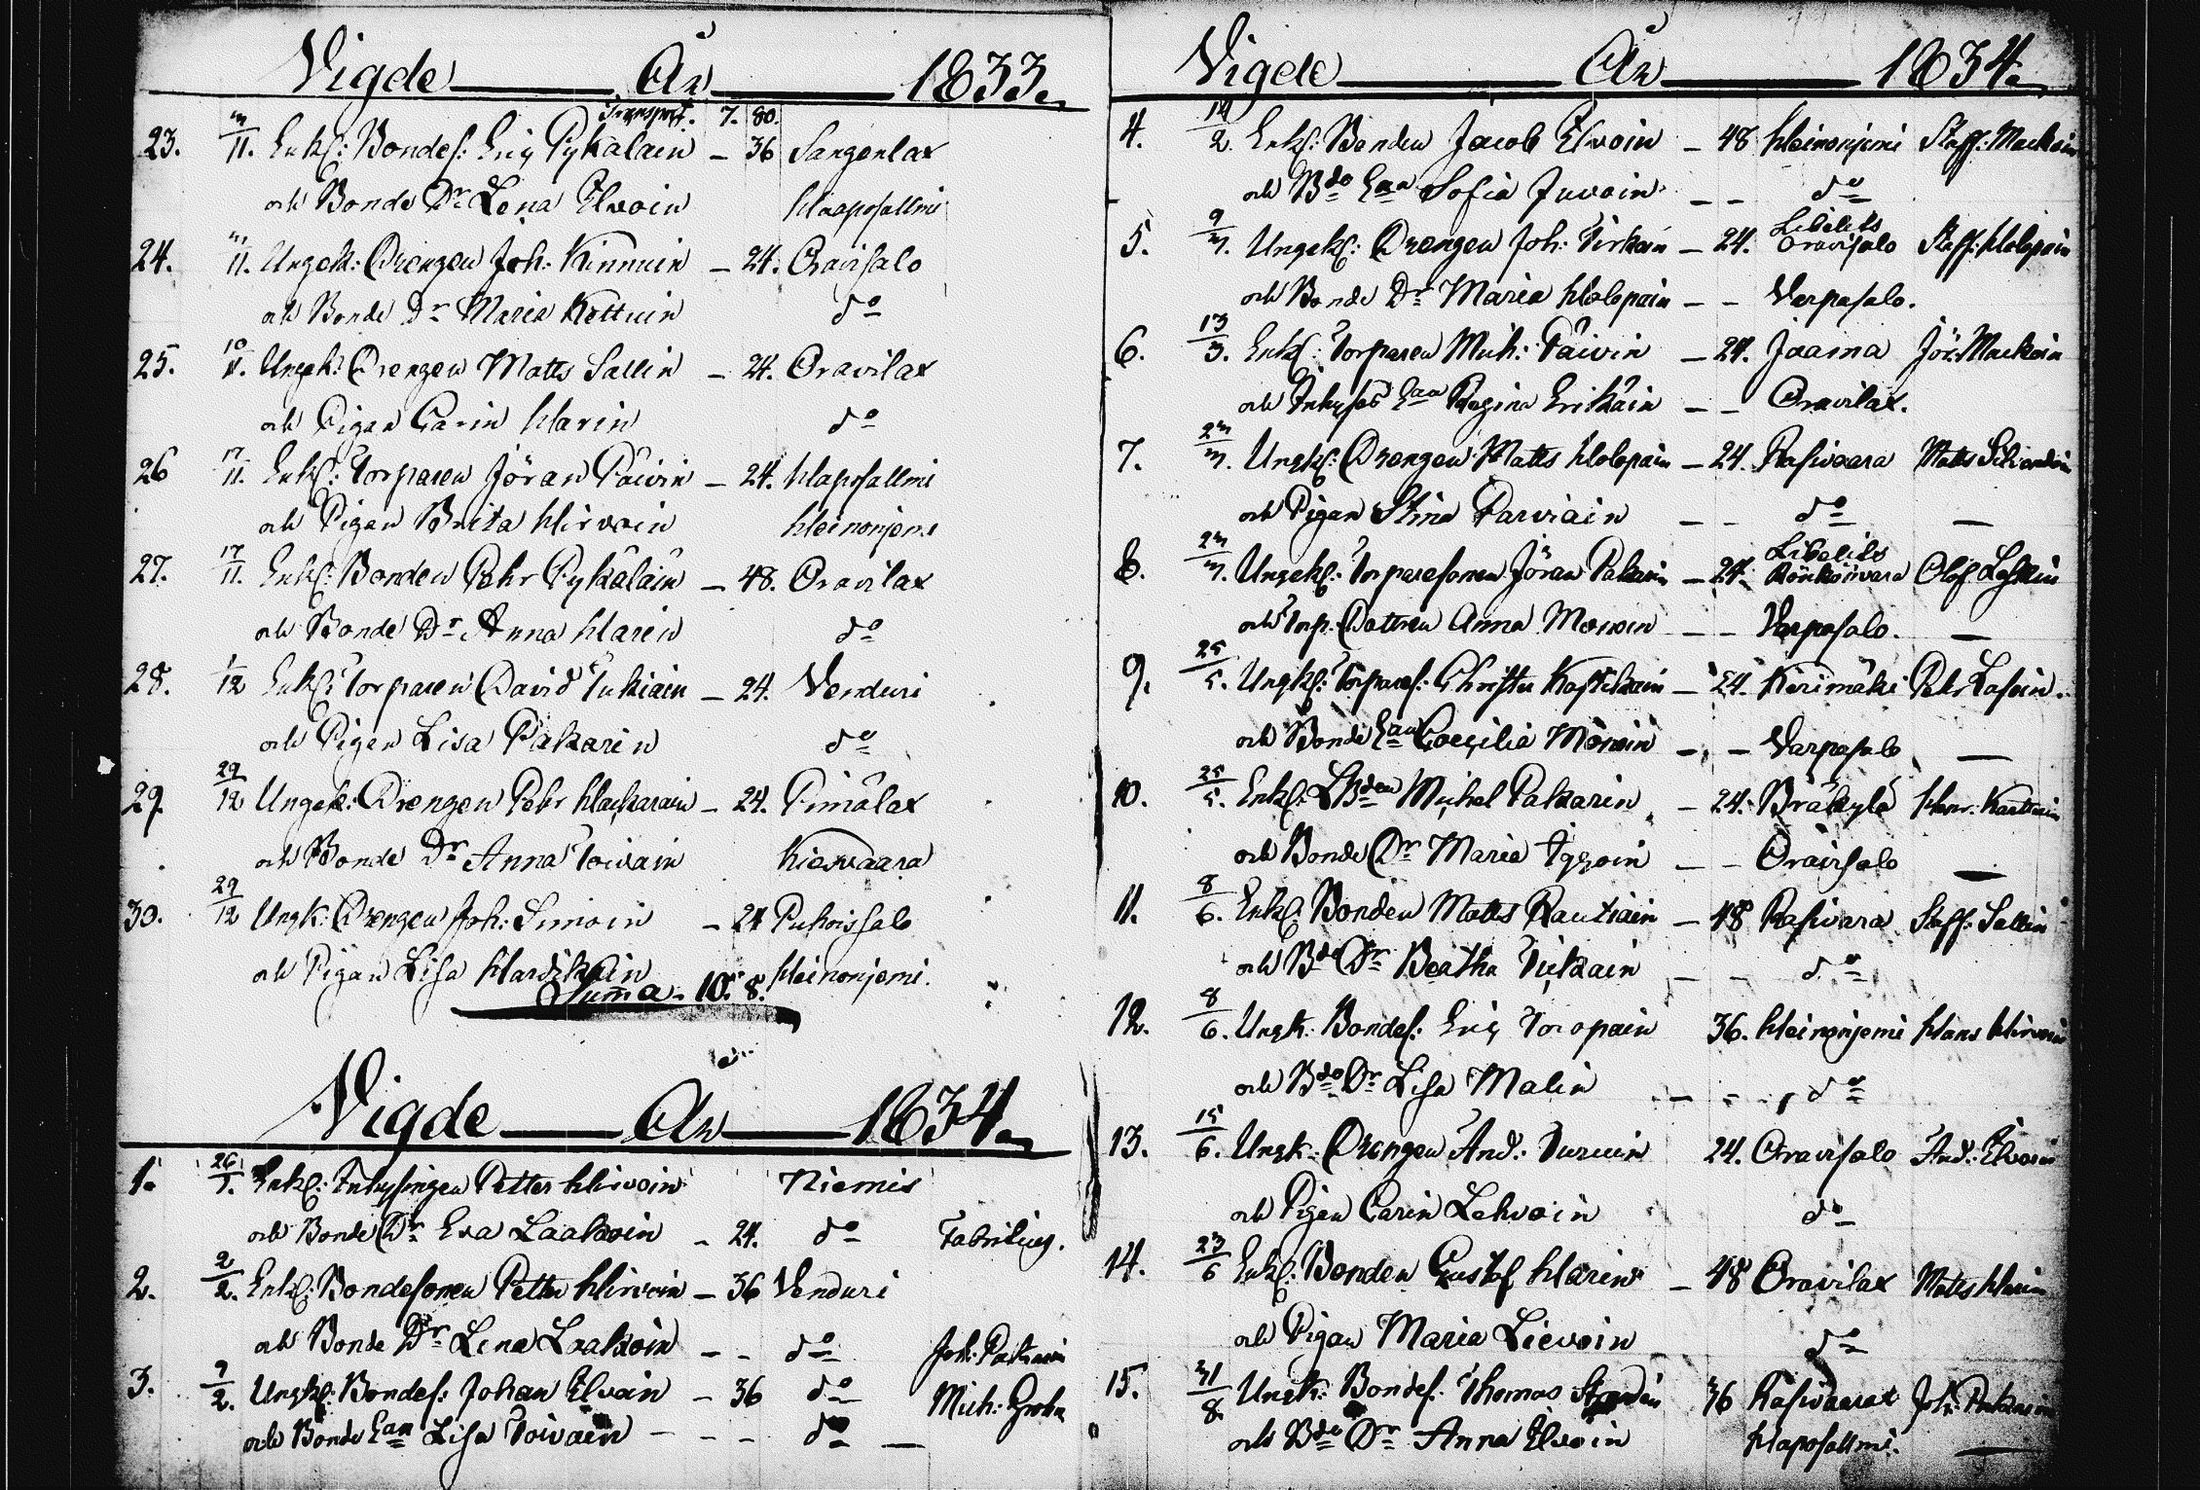 Vigde År 1833.
Transport. 7. 80.
23. 3/11. Enkl: Bondes: Eriç Pykäläin – 36 Sangenlax
och Bonde Dr Lena Elwoin Haaposallmi
24. 3/11. Ungek: Drengen Joh: Kinnuin – 24. Oravisalo
och Bonde Dr Maria Kettuin do
25. 10/11. Ungek: Drengen Matts Sallin – 24. Oravilax
och Pigan Carin Harin do
26 17/11. Enkl: Torparen Jöran Päivin – 24. Haposallmi
och Pigan Brita Hirvoin Heinonjemi
27. 17/11. Enkl: Bonden Pehr Pykäläin – 48. Oravilax
och Bonde Dr Anna Harin do
28. 1/12 Enkl: Torparen David Tukiain – 24. Venduri
och Pigan Lisa Pakarin do
29. 29/12 Ungek: Drengen Pehr Hackarain – 24. Pimälax
och Bonde Dr Anna Toivain Kieswaara
30. 29/12 Ungk: Drengen Joh: Simoin – 24 Puhoissalo
och Pigan Lisa Hardikain Heinonjemi.
Summa – 10. 8.
Vigde År 1834.
1. 26/1. Enkl: Inhysingen Petter Hirvoin Niemis
och Bonde Dr Eva Laakoin – 24. do
2. 2/2. Enkl: Bondesonen Petter Hirvoin – 36 Venduri
och Bonde Dr Lena Laakoin – – do Joh: Pakarin
3. 9/2. Ungkl: Bondes: Johan Elvoin – 36 do Mich: Grohn
och Bonde Ean Lisa Toivain – – – do —
Vigde År 1834.
4. 14/2. Enkl: Bonden Jacob Elvoin – 48 Heinonjemi Staff: Mackoin
och Bdo Ean Sofia Juvoin – – do
5. 9/3. Ungekl: Drengen Joh: Tirkain – 24. Libelits Oravisalo Staff: Holopain
och Bonde Dr Maria Holopain – – Varpasalo.
6. 13/3. Enkl: Torparen Mich: Päivin – 24. Jaama Jör: Mackoin
och Inhyses Ean Regina Erikäin – – Oravilax.
7. 23/3. Ungkl: Drengen Matts Holopain – 24. Rasiwaara Matts
och Pigan Stina Parviain – – do —
8. 23/3. Ungekl: Torparesonen Jöran Pakarin – 24. Libelits Rönkönvara Olof Loskin
och Torp: Dottren Anna – – Varpasalo. —
9. 25/5. Ungkl: Torpares: Christer – 24. Kerimäki Pehr Lasoin.
och Bonde Ean Coecilia – – Varpasalo —
10. 25/5. Enkl: Michel Pakarin – 24. Bräkylä Henr: Karttuin
och Bonde Dr Maria – – Oravisalo —
11. 8/6. Enkl: Bonden Matts Rautiain – 48 Rasivara Staff: Sallin
och Bdo Dr Beatha – – do
12. 8/6. Ungk: Bondes: Eriç Toropain 36. Heinonjemi Hans Hirvoin
och Bdo Dr Lisa Malin – – do
13. 15/6. Ungk: Drengen And: Turuin 24. Oravisalo And: Elvoin
och Pigan Carin Lehvoin do
14. 23/6 Enkl: Bonden Gustaf Harin – 48 Oravilax Matts Harin
och Pigan Maria Lievoin do
15. 31/8. Ungk: Bondes: Thomas 36 Rasiwaara Joh: Pakarin
och Bdo Dr Anna Elvoin Haposallmi. —